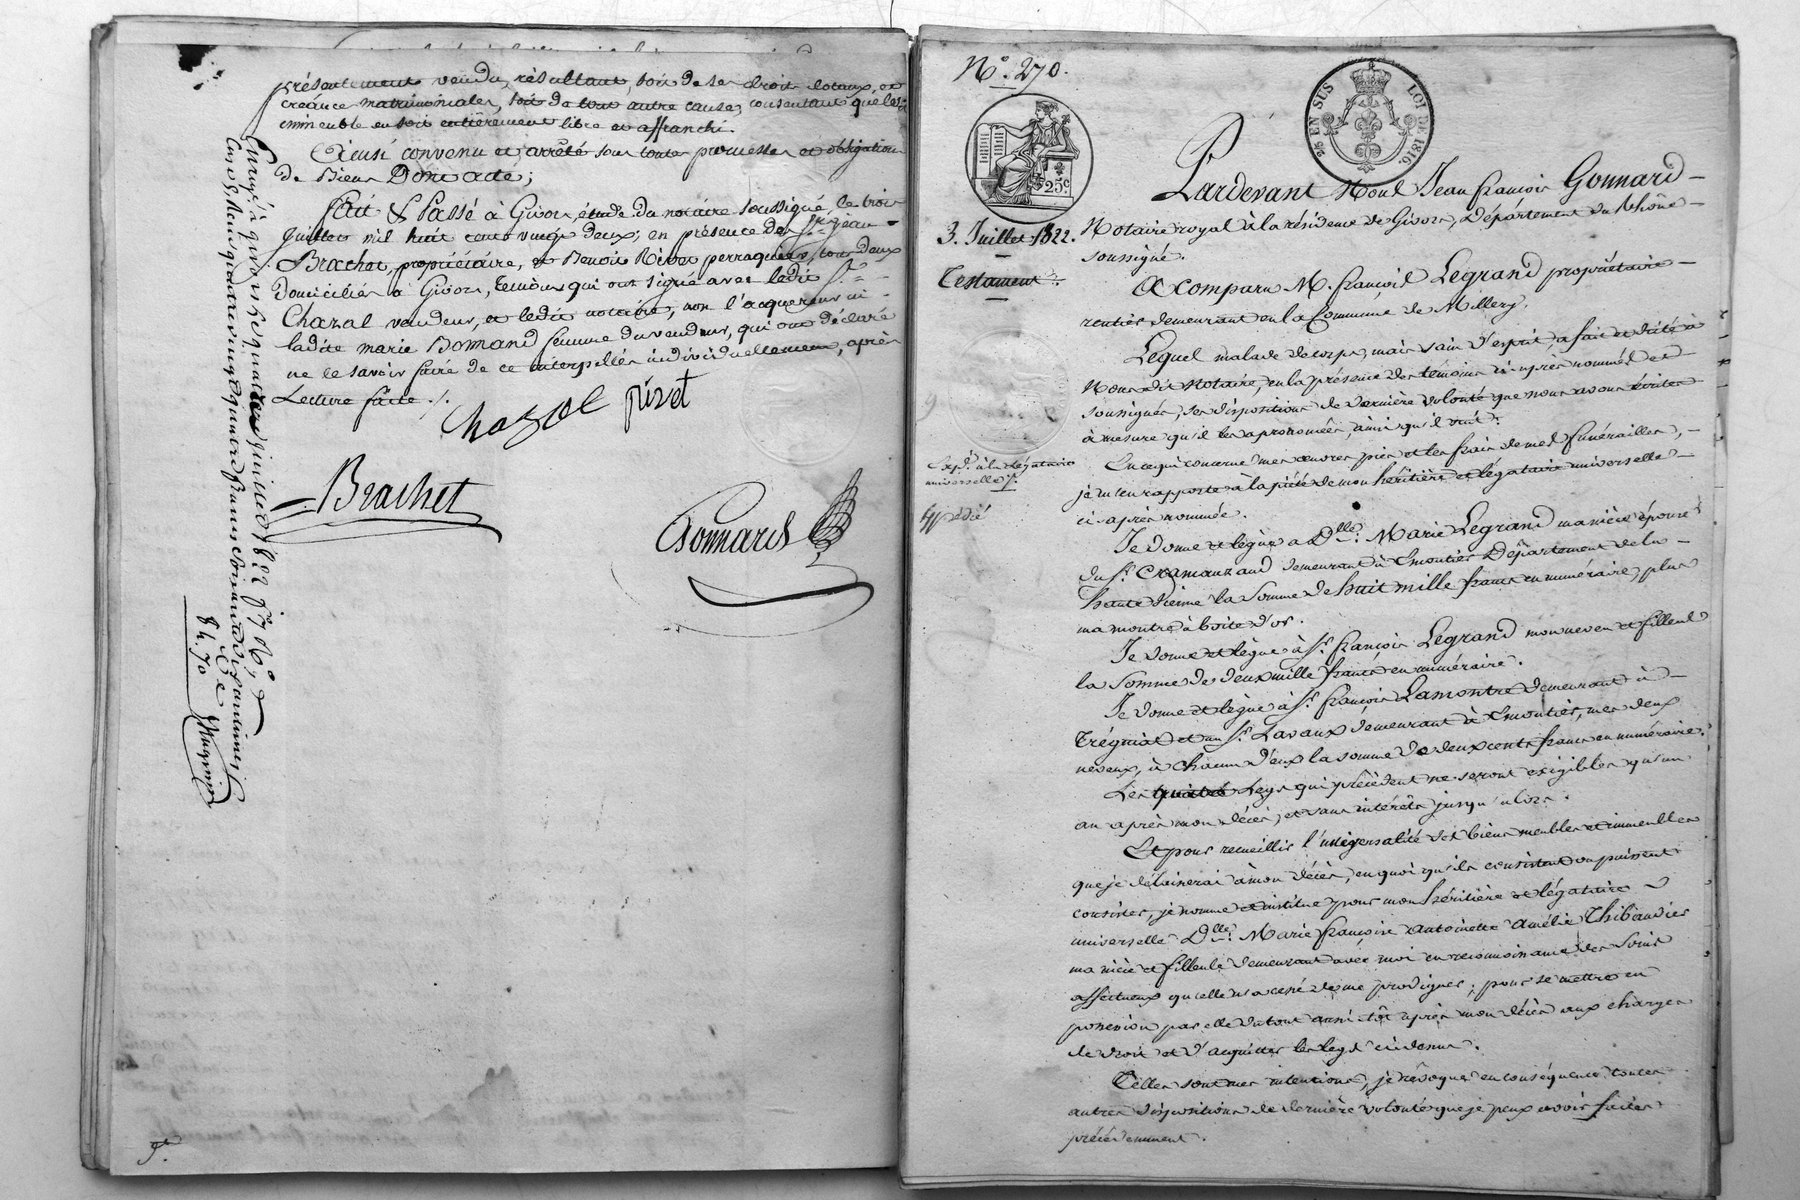 présentement vendu, résultant, soit de ses droits dotaux, et
créances matrimoniales, soit de tout autre cause, consentant que led.
immeuble en soit entièrement libre et affranchi.
Ainsi convenu et arrêté sous toutes promesses et obligation
de Biens Dont acte;
Fait & Passé à Givors, étude du notaire soussigné, le trois
Juillet mil huit cent vingt deux; en présence des Srs Jean
Brachet, propriétaire, et Benoit Rivet perraquier, tous deux
domiciliés à Givors, témoins qui ont signé avec ledit Sr
Chazal vendeur, et ledit notaire, non l'acquereur ni
ladite marie Bonnand femme du vendeur, qui ont déclaré
ne le savoir faire de ce interpellés individuellement, après
Lecture faite ./.
Chazal rivet
Brachet
Gonnard
N.° 270.
EN SUS
LOI DE 1816.
25c
3. Juillet 1822.
Testament
Expd. à la Légataire
universelle
Expédié
Pardevant Nous Jean François Gonnard
Notaire royal à la résidence de Givors, Département du Rhône
soussigné.
A comparu M. françois Legrand propriétaire
rentier demeurant en la Commune de Millery.
Lequel malade de corps, mais sain d'esprit, a fait et dicté à
Nous dit Notaire, en la présence des témoins ci-après nommés et
soussignés, ses dispositions de dernière volonté que nous avons écrites
à mesure qu'il les a prononcées, ainsi qu'il suit:
En ce qui concerne mes œuvres pies et les frais de mes funérailles,
je m'en rapporte à la piété de mon héritière et légataire universelle
ci-après nommée.
Je donne et lègue à Dlle. Marie Legrand ma nièce épouse
du Sr. Cramouzaud demeurant à Eymoutiers Département de la
haute Vienne la Somme de huit mille francs en numéraire, plus
ma montre à boite d'or.
Je donne et lègue à Sr. françois Legrand mon neveu et filleul
la Somme de deux mille francs en numéraire.
Je donne et lègue à Sr. françois Lamontre demeurant à
Tréguiat et au Sr. Lavaux demeurant à Eymoutiers, mes deux
neveux, à chacun d'eux la somme de deux cents francs en numéraire.
Les quatre Legs qui précèdent ne seront exigibles qu'un
an après mon décès, et sans intérêts jusqu'alors.
Et pour recueillir l'universalité des biens meubles et immeubles
que je délaisserai à mon décès, en quoi qu'ils consistent ou puissent
consister, je nomme et institue pour mon héritière et légataire
universelle Dlle. Marie françoise Antoinette Amélie Thibaudier
ma nièce et filleule demeurant avec moi en reconnoissance des Soins
affectueux qu'elle n'a cessé de me prodiguer; pour se mettre en
possession par elle du tout aussitôt après mon décès aux charges
de droit et d'acquitter les legs ci-dessus.
Telles sont mes intentions, je révoque en conséquence toutes
autres dispositions de dernière volonté que je peux avoir faites
précédemment.